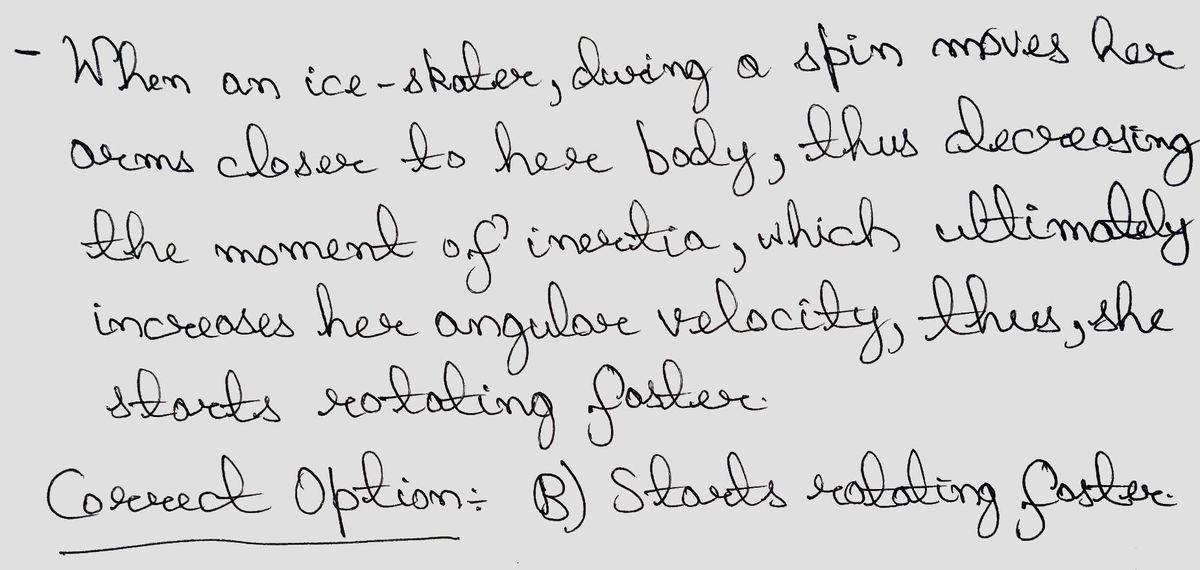 - When an ice-skater, during a spin moves her
arms closer to here body, thus decreasing
the moment of inertia, which ultimately
increases her angular velocity, thus, she
starts rotating faster.
Correct Option:- B) Starts rotating faster.